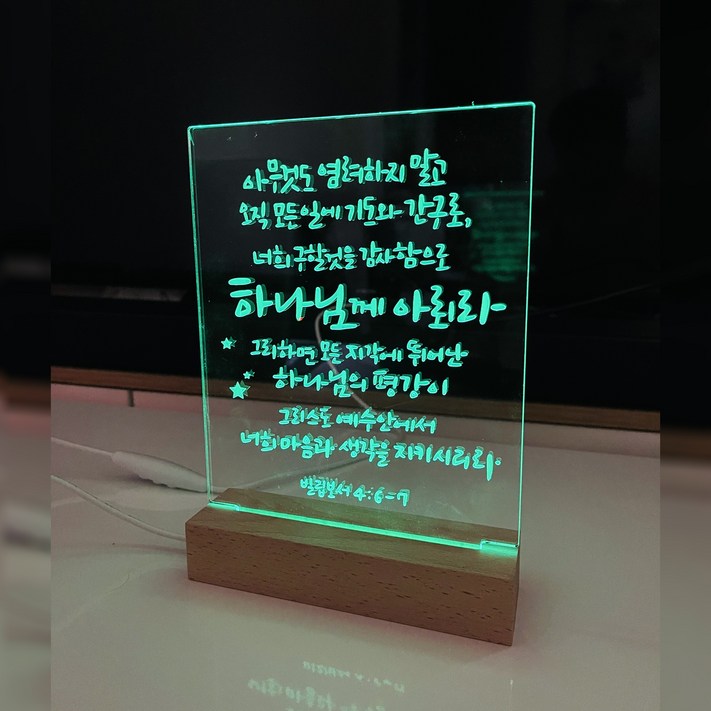 아무것도 염려하지 말고
오직 모든일에 기도와 간구로,
너희 구할것을 감사함으로
하나님께 아뢰라
그리하면 모든 지각에 뛰어난
하나님의 평강이
그리스도 예수안에서
너희 마음과 생각을 지키시리라.
빌립보서 4:6-7